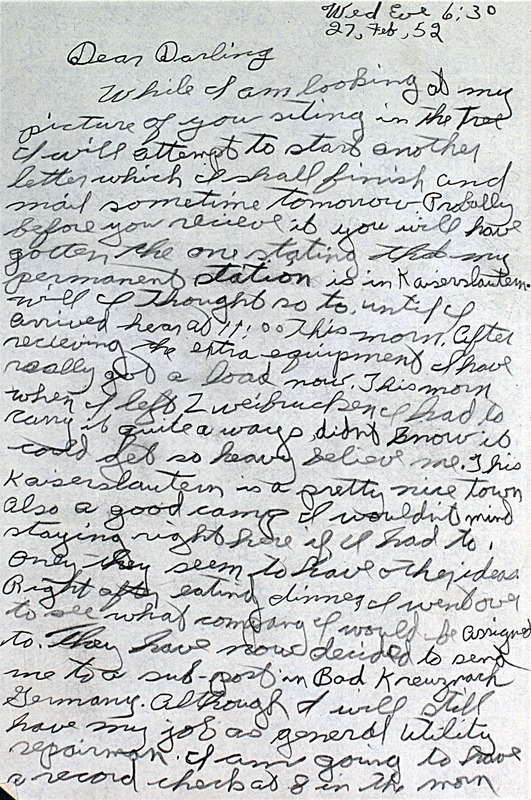 Wed Eve 6:30
27, Feb, 52
Dear Darling
While I am looking at my
picture of you siting in the tree
I will attempt to start another
letter which I shall finish and
mail sometime tomorrow Probally
before you recieve it you will have
gotten the one stating that my
permanent station is in Kaiserslautern.
will I Thought so to, until I
arrived hear at 11:00 This morn. After
recieving the extra equipment I have
really got a load now. This morn
when I left Zweibrucken I had to
carry it quite a ways didn't know it
could get so heavy believe me. This
Kaiserslautern is a pretty nice town
also a good camp I wouldn't mind
staying right here if I had to,
only they seem to have other ideas
Right after eating dinner I went over
to see what company I would be assigned
to. They have now decided to send
me to a sub-post in Bad Kreuznach
Germany. Although I will still
have my job as general utility
repairman. I am going to have
a record check at 8 in the morn